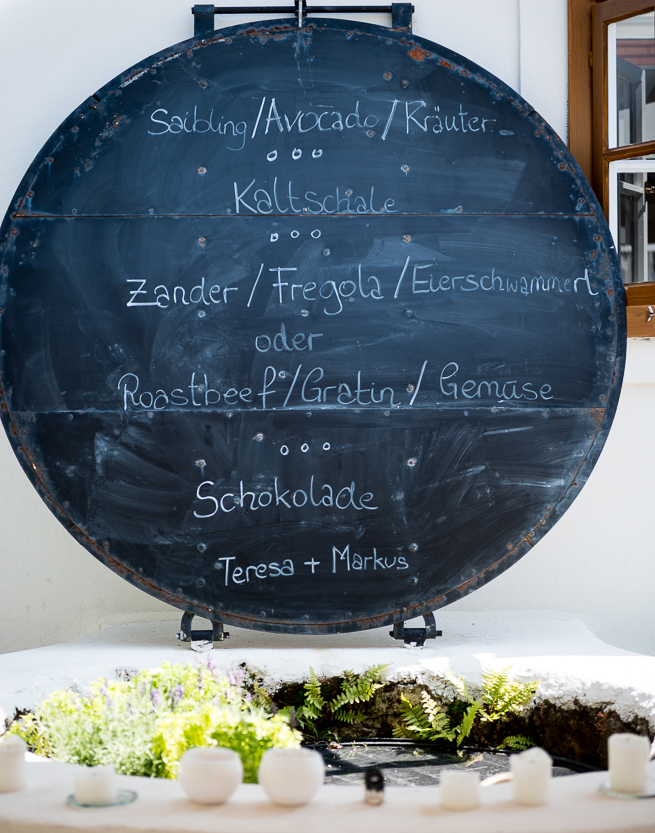 Saibling/Avocado/Kräuter
ooo
Kaltschale
ooo
Zander/Fregola/Eierschwammerl
oder
Roastbeef/Gratin/Gemüse
ooo
Schokolade
Teresa + Markus